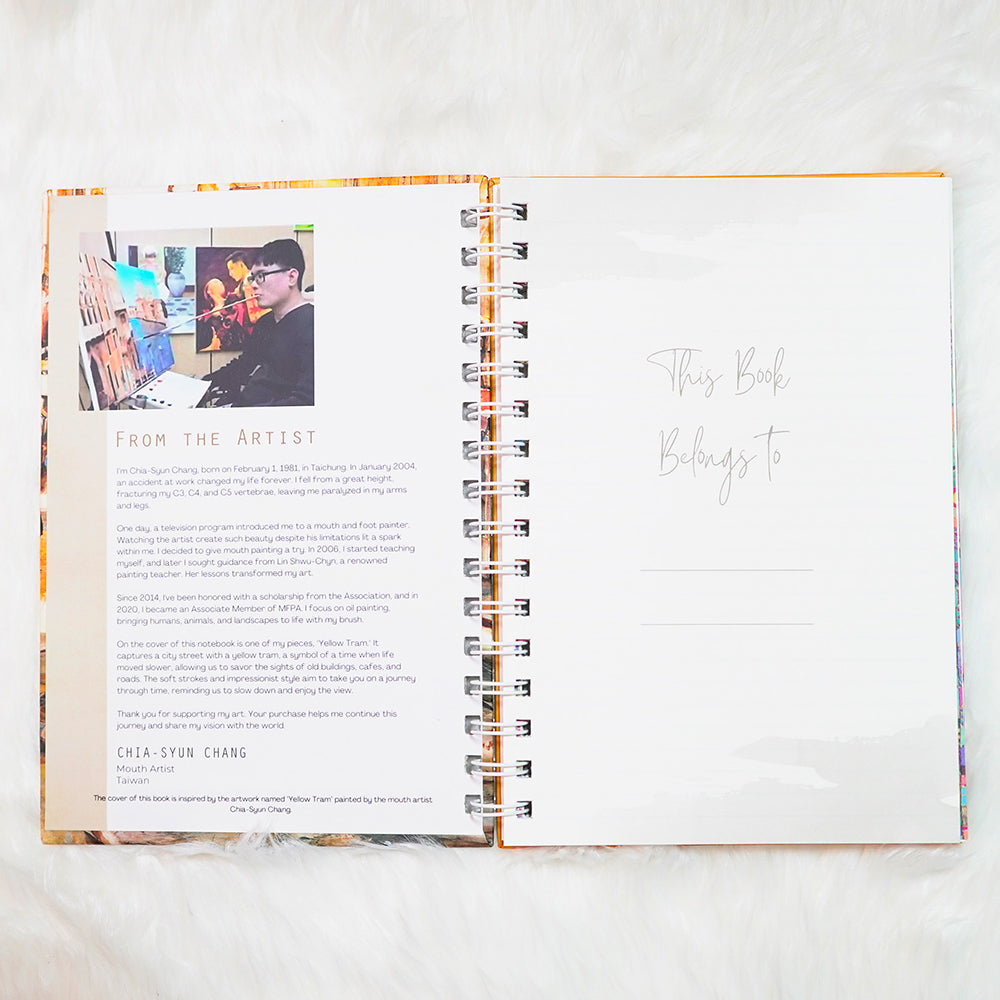 FROM THE ARTIST
I'm Chia-Syun Chang, born on February 1, 1981, in Taichung. In January 2004,
an accident at work changed my life forever. I fell from a great height,
fracturing my C3, C4, and C5 vertebrae, leaving me paralyzed in my arms
and legs.
One day, a television program introduced me to a mouth and foot painter.
Watching the artist create such beauty despite his limitations lit a spark
within me. I decided to give mouth painting a try. In 2006, I started teaching
myself, and later I sought guidance from Lin Shwu-Chyn, a renowned
painting teacher. Her lessons transformed my art.
Since 2014, I've been honored with a scholarship from the Association, and in
2020, I became an Associate Member of MFPA. I focus on oil painting,
bringing humans, animals, and landscapes to life with my brush.
On the cover of this notebook is one of my pieces, 'Yellow Tram.' It
captures a city street with a yellow tram, a symbol of a time when life
moved slower, allowing us to savor the sights of old buildings, cafes, and
roads. The soft strokes and impressionist style aim to take you on a journey
through time, reminding us to slow down and enjoy the view.
Thank you for supporting my art. Your purchase helps me continue this
journey and share my vision with the world.
CHIA-SYUN CHANG
Mouth Artist
Taiwan
The cover of this book is inspired by the artwork named 'Yellow Tram' painted by the mouth artist
Chia-Syun Chang.
This Book
Belongs to